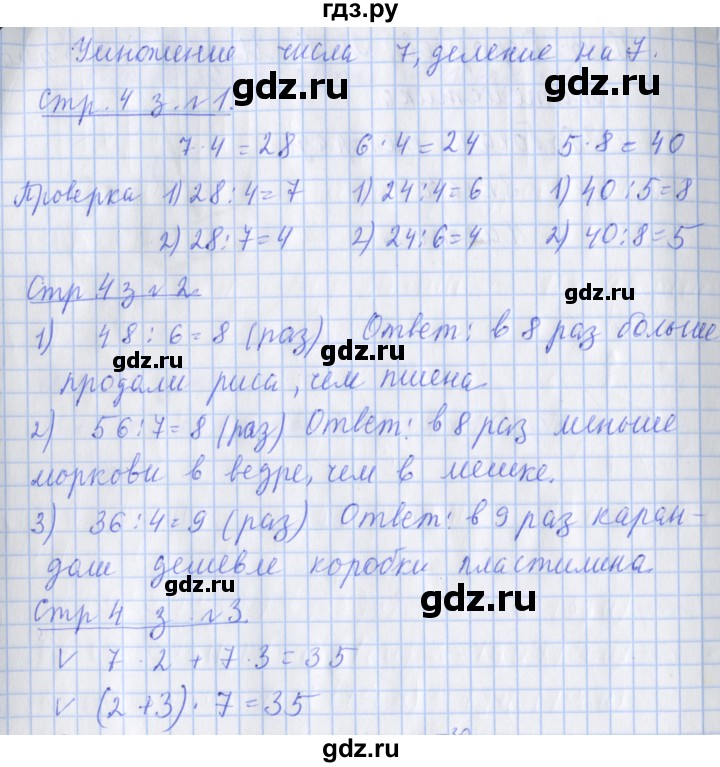 гдз.ру
Умножение числа 7, деление на 7.
gdz.ru gdz.ru
Стр. 4 з. №1.
7·4=28 6·4=24 5·8=40
Проверка 1) 28:4=7 1) 24:4=6 1) 40:5=8
2) 28:7=4 2) 24:6=4 2) 40:8=5
Стр 4 з №2.
gdz.ru
1) 48:6=8 (раз) Ответ: в 8 раз больше
gdz.ru
продали риса, чем пшена.
2) 56:7=8 (раз) Ответ: в 8 раз меньше
gdz.ru
моркови в ведре, чем в мешке.
gdz.ru
3) 36:4=9 (раз) Ответ: в 9 раз каран-
даш дешевле коробки пластилина.
gdz.ru
Стр 4 з №3.
gdz.ru
v 7·2+7·3=35
v (2+3)·7=35
gdz.ru
gdz.ru